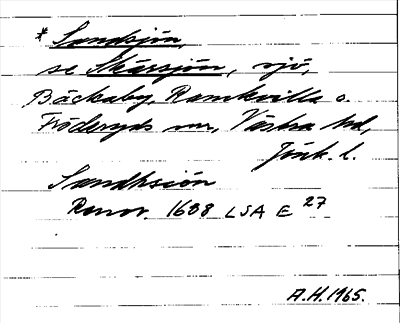 * Sandsjön,
se Skärsjön, sjö,
Bäckaby, Ramkvilla o.
Fröderyds snr, Västra hd,
Jönk. l.
Sandhsiön
Renov. 1688 LSA E 27
A.H. 1965.